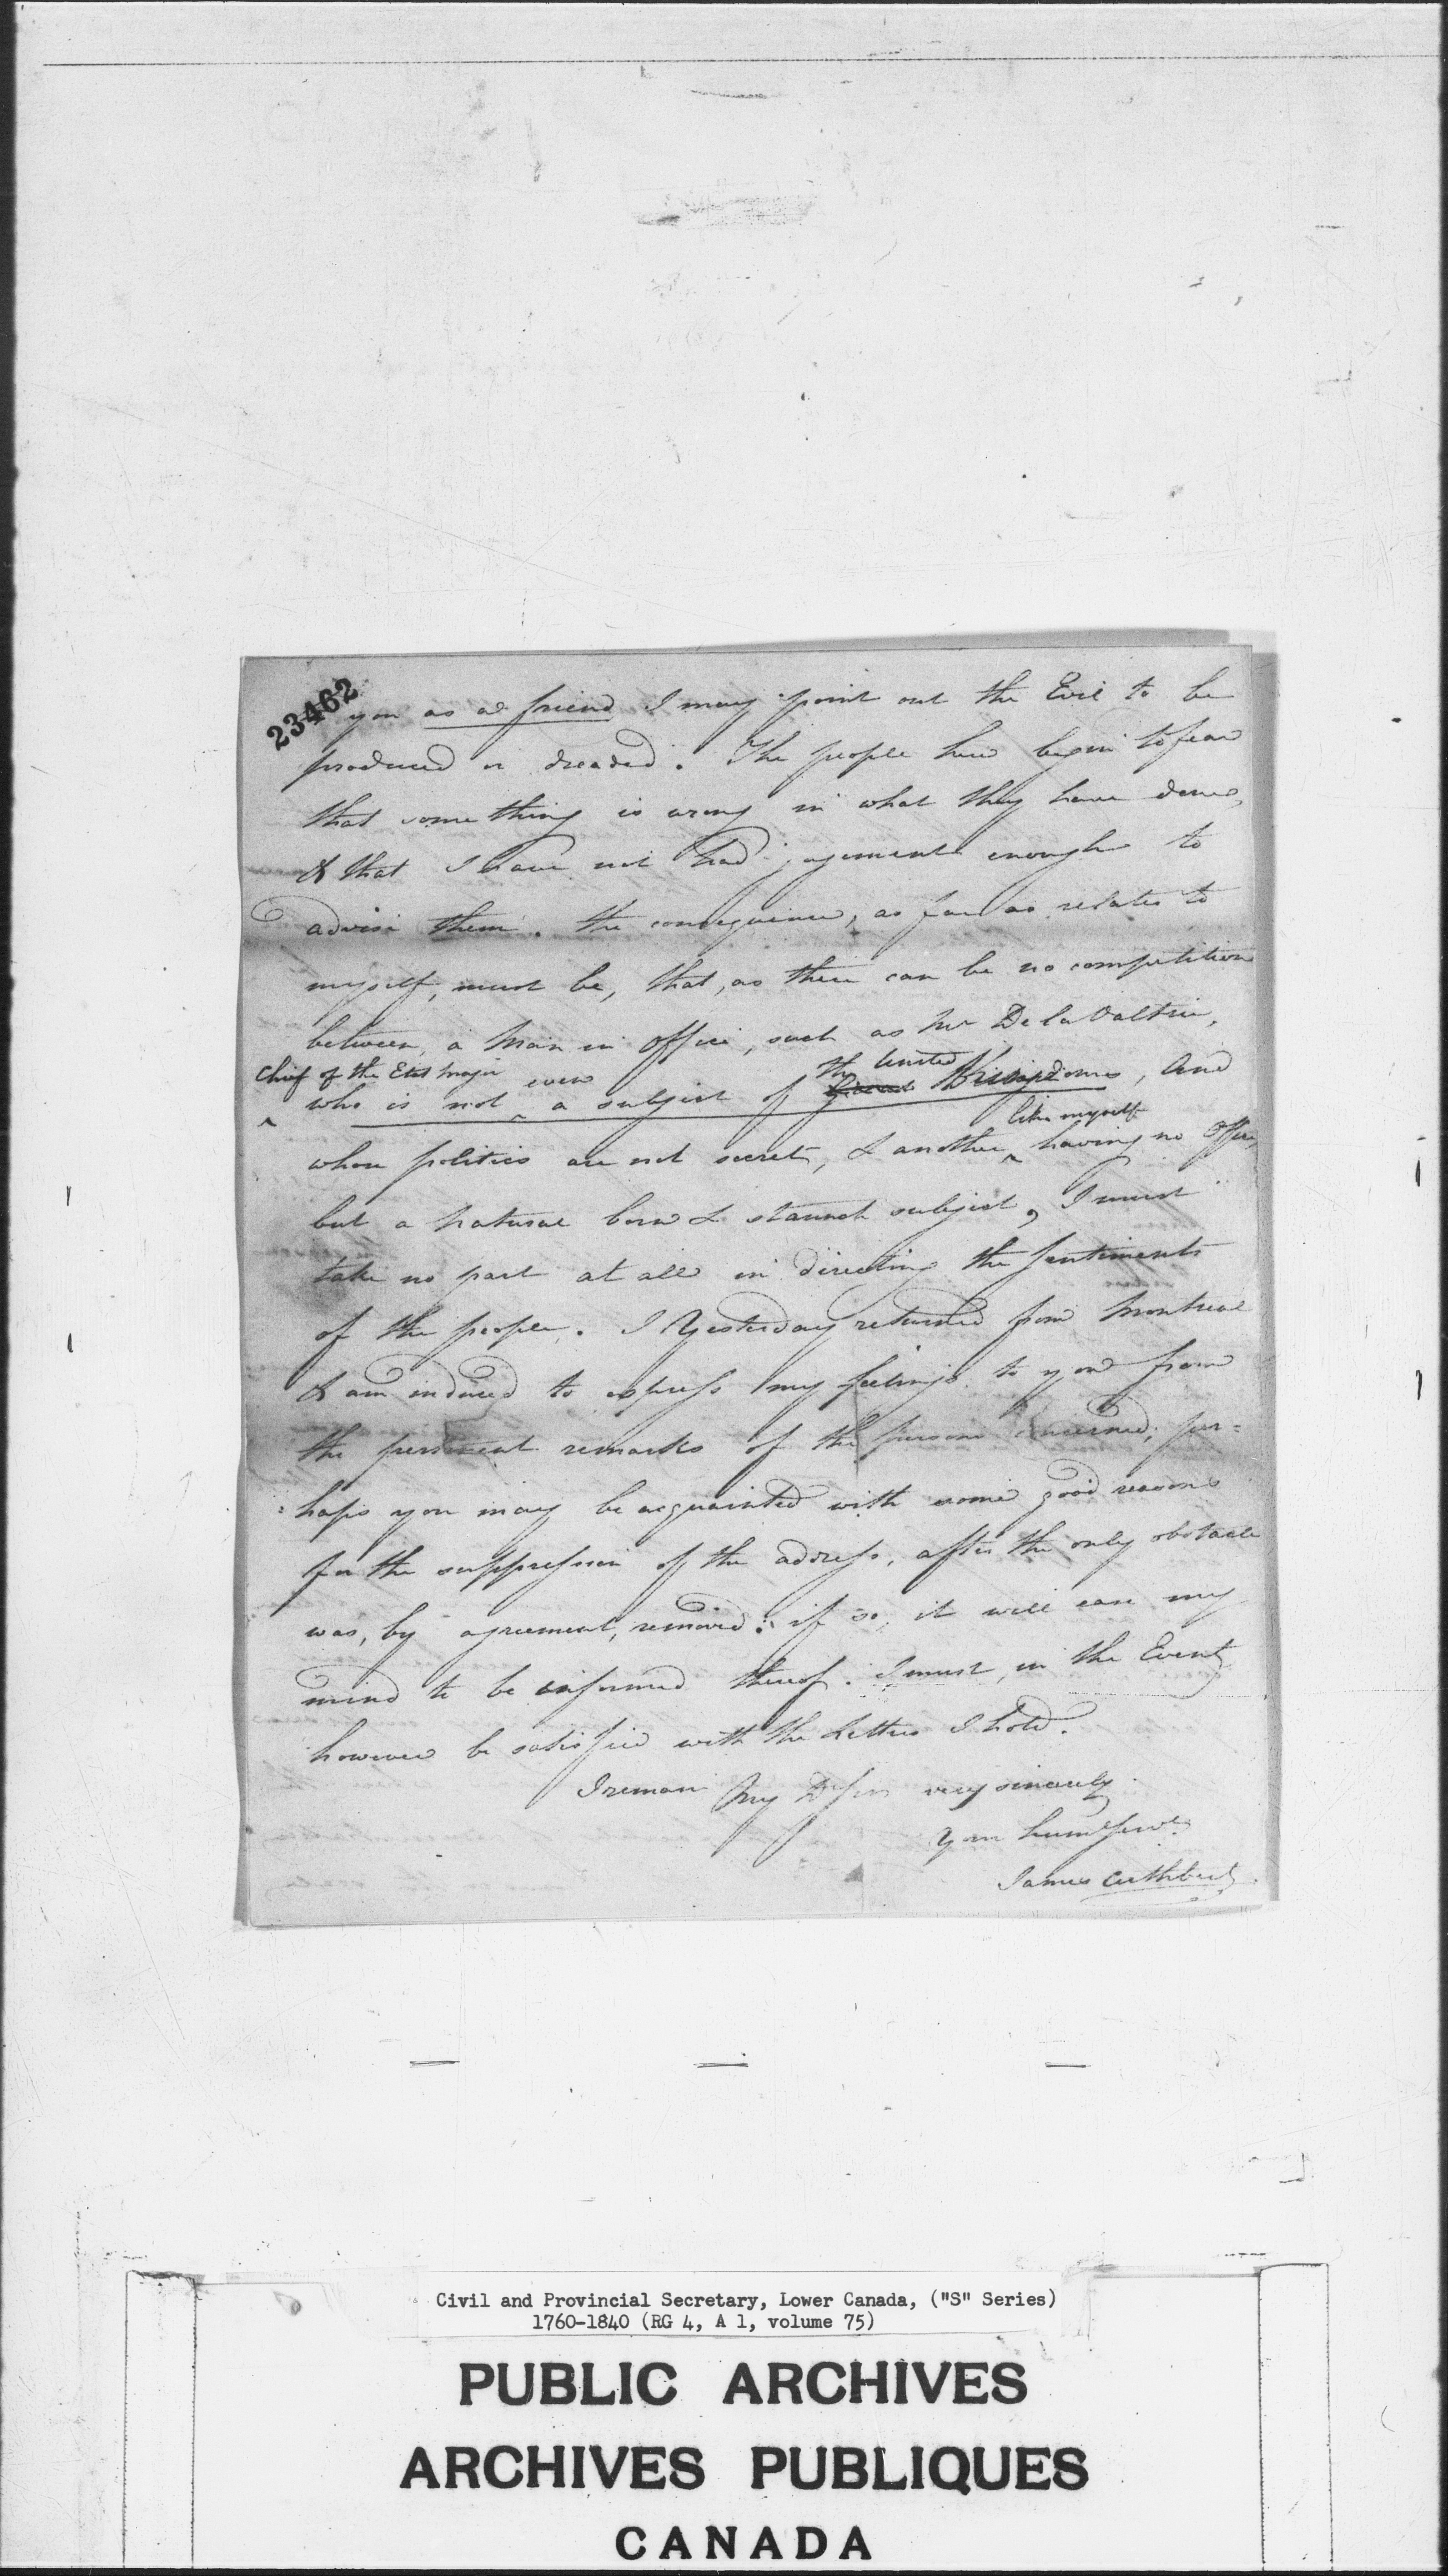 23462
you as a friend I may point out the Evil to be
produced or dreaded. The people here begin to fear
that something is wrong in what they have done,
& that I have not had jugement enough to
advise them. the consequence, as far as relates to
myself, must be, that, as there can be no competition
between, a Man in Office, such as Mr De la Valtrie,
Chief of the Etat Major even the United
who is not a subject of Kingdoms, And
like myself
whose politics are not secret, & another having no Office,
but a natural born & staunch subject, I must
take no part at all in directing the sentiments
of the people. I Yesterday returned from Montreal
& am induced to express my feelings to you from
the remarks of the persons concerned; per=
=haps you may be acquainted with some good reasons
for the suppression of the address, after the only obstacle
was, by agreement, removed: if so, it will ease my
mind to be informed thereof. I must, in the Event,
however be satisfied with the Letters I hold.
I remain My D Sir very sincerely
Your humle servt.
James Cuthbert
Civil and Provincial Secretary, Lower Canada, ("S" Series)
1760-1840 (RG 4, A 1, volume 75)
PUBLIC ARCHIVES
ARCHIVES PUBLIQUES
CANADA